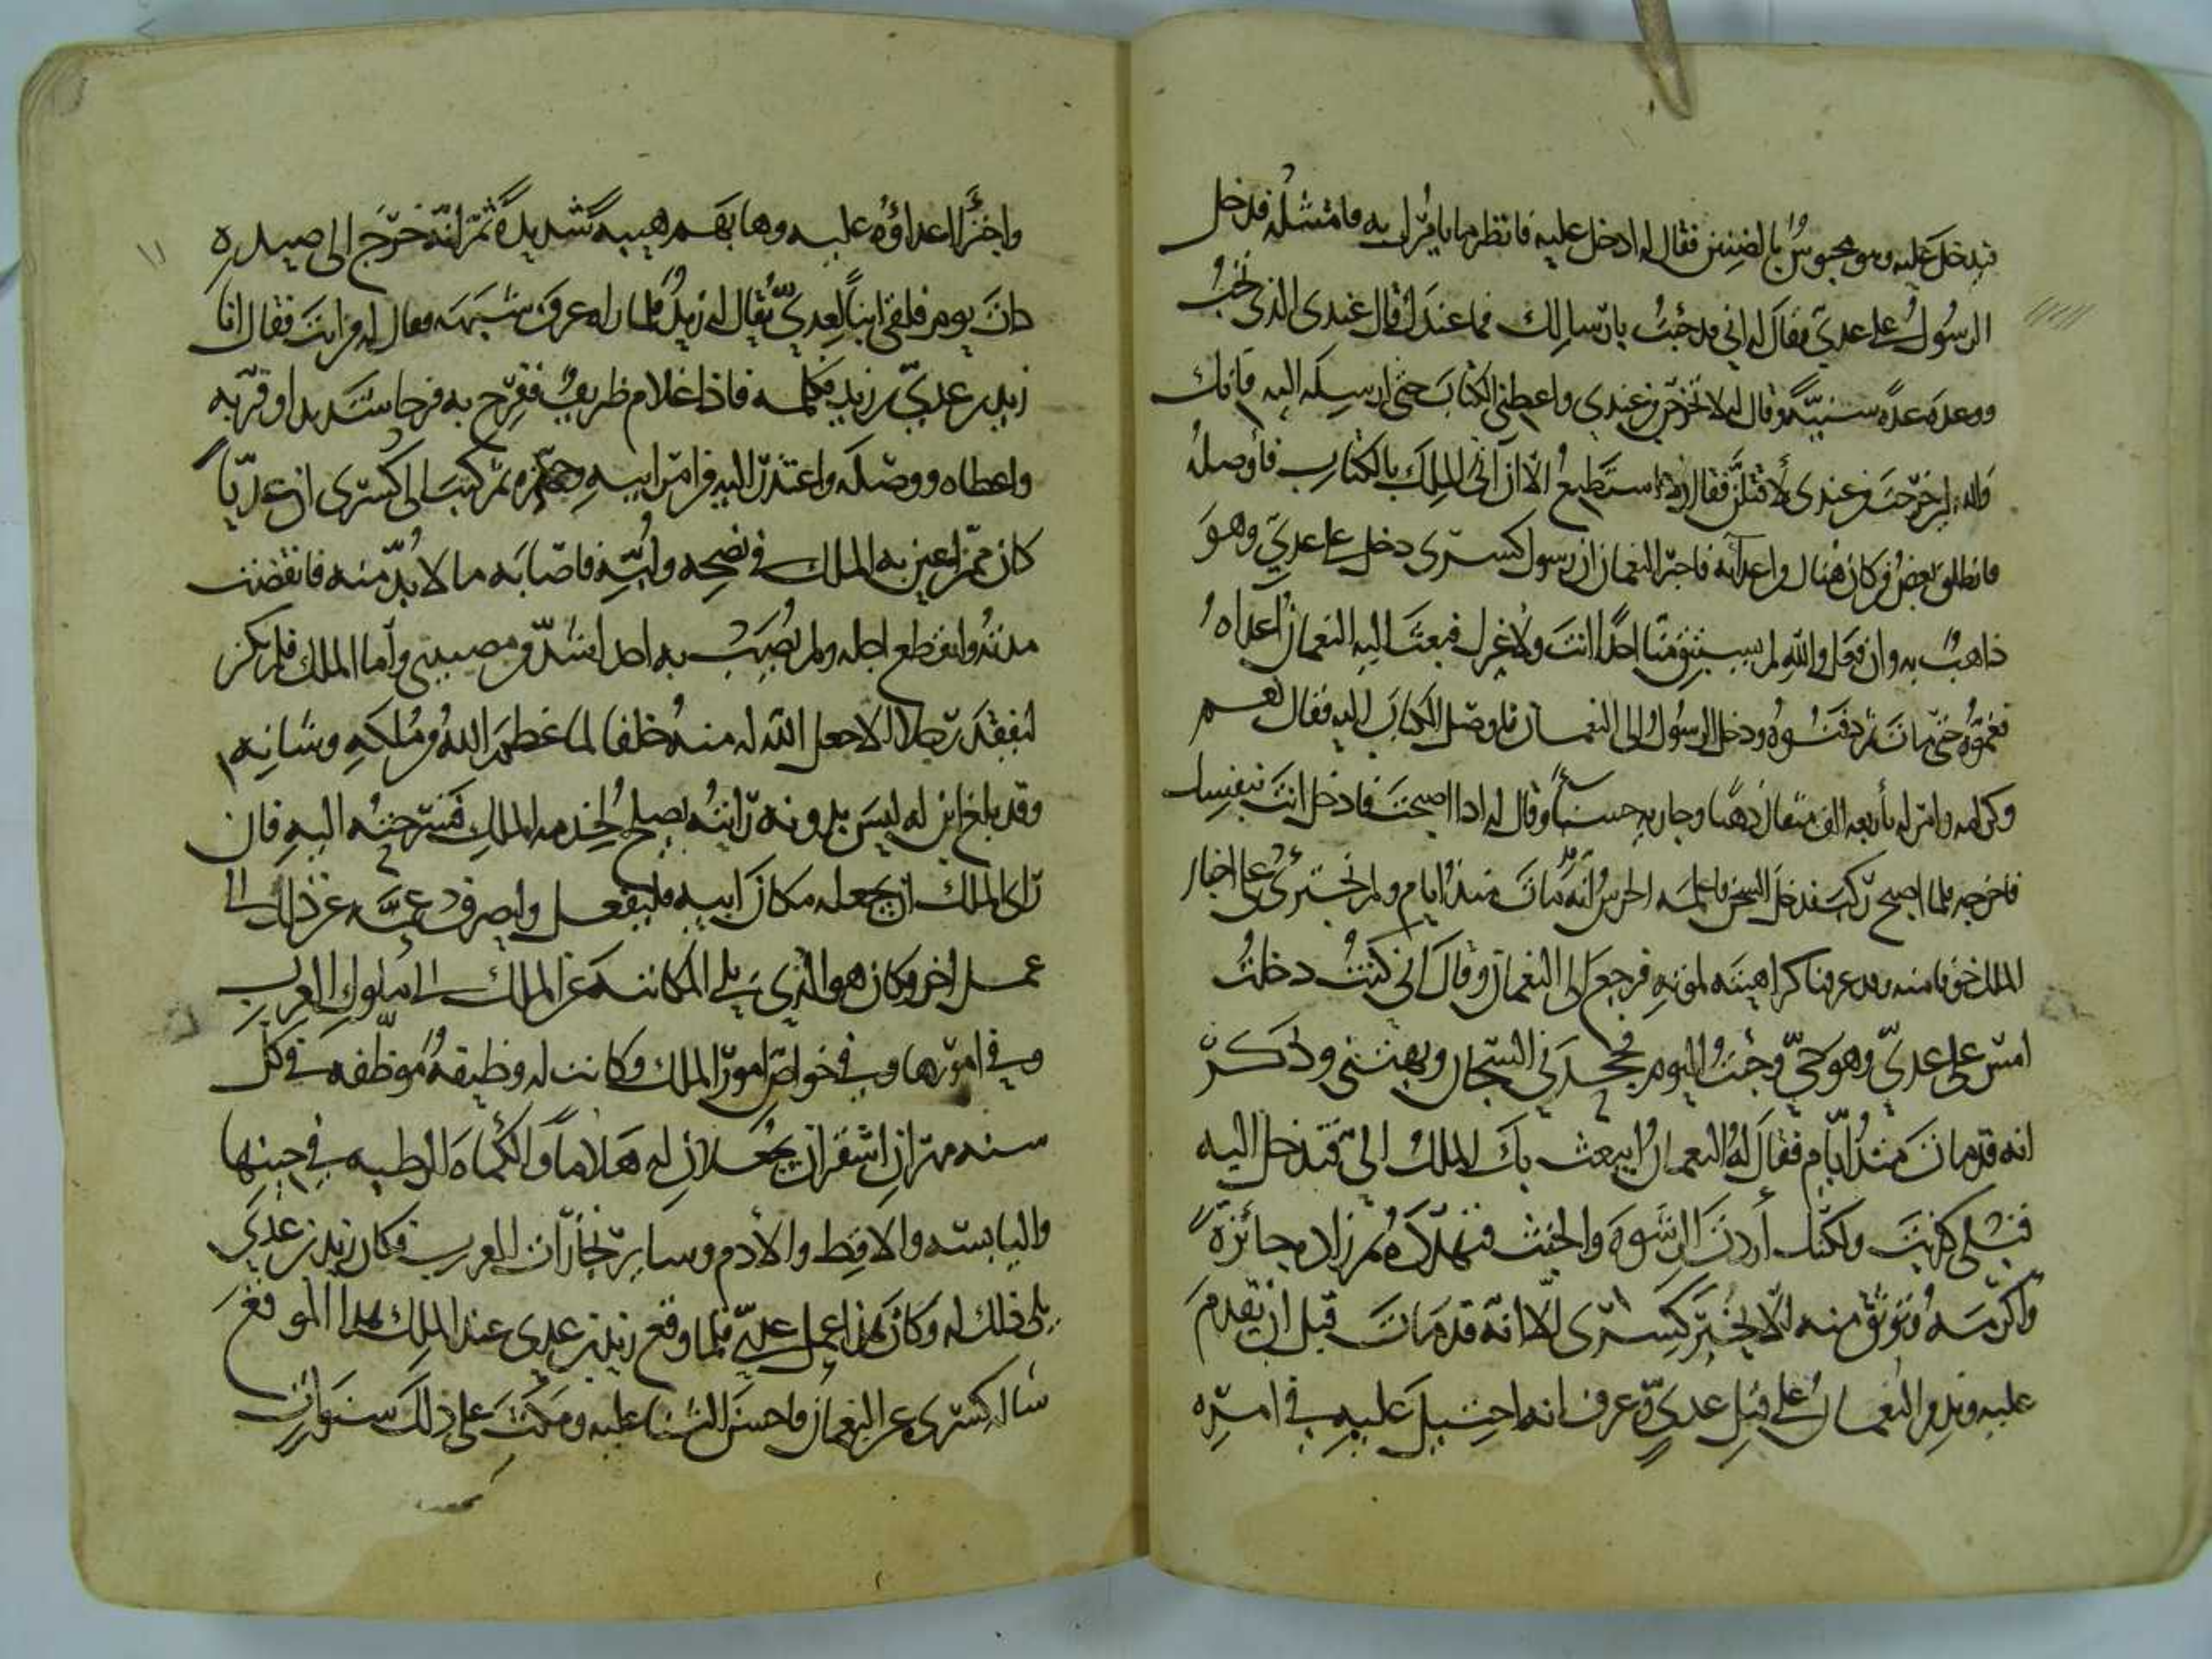 فدخل عليه وهو محبوس بالصنين فقال له ادخل عليه فانظر ما يامرك به فامتثله فدخل
الرسول على عدي فقال له اني قد جئت بارسالك فما عندك قال عندي الذي تحب
ووعده عدة سنية وقال له لا تخرجن من عندي واعطني الكتاب حتى ارسله اليه فانك
والله ان خرجت من عندي لاقتلن فقال لا استطيع الا ان اتي الملك بالكتاب فاوصله
فانطلق بعض من كان هناك من اعدائه فاخبر النعمان ان رسول كسرى دخل على عدي وهو
ذاهب به وان فعل والله لم يستبق منا احدا انت ولا غيرك فبعث اليه النعمان اعداه
فغموه حتى مات ثم دفنوه ودخل الرسول الى النعمان فاوصل الكتاب اليه فقال نعم
وكرامه وامر له باربعه الاف مثقال ذهبا وجاريه حسنا وقال له اذا اصبحت فادخل انت بنفسك
فاخرجه فلما اصبح ركب فدخل السجن فاعلمه الحرس انه قد مات منذ ايام ولم نجترئ على اخبار
الملك خوفا منه وقد عرفنا كراهيته لموته فرجع الى النعمان وقال اني كنت دخلت
امس على عدي وهو حي وجئت اليوم فجحدني السجان وبهتني وذكر
انه قد مات منذ ايام فقال له النعمان ايبعث بك الملك الي فتدخل اليه
قبلي كذبت ولكنك اردت الرشوة والخبث فتهدده ثم زاده جائزة
واكرمه وتوثق منه الا يخبر كسرى الا انه قد مات قبل ان يقدم
عليه وندم النعمان على قتل عدي وعرف انه احتيل عليه في امره
واجترا اعداؤه عليه وهابهم هيبة شديدة ثم انه خرج الى صيده
ذات يوم فلقي ابنا لعدي يقال له زيد فلما راه عرف شبهه فقال له من انت فقال انا
زيد بن عدي بن زيد فكلمه فاذا غلام ظريف ففرح به فرحا شديدا وقربه
واعطاه ووصله واعتذر اليه من امر ابيه وجهزه ثم كتب الى كسرى ان عديا
كان ممن اعين به الملك في نصحه ولبه فاصابه ما لا بد منه فانقضت
مدته وانقطع اجله ولم يصب به احد اشد من مصيبتي واما الملك فلم يكن
ليفقد رجلا الا جعل الله له منه خلفا لما عظم الله من ملكه وشانه
وقد بلغ ابن له ليس بدونه رايته يصلح لخدمه الملك فسرحته اليه فان
راى الملك ان يجعله مكان ابيه فليفعل وليصرف عمه عن ذلك الى
عمل اخر وكان هو الذي يلي المكاتبه عن الملك الى ملوك العرب
وفي امورها وفي خواص امور الملك وكانت له وظيفة موظفه في كل
سنه مهران اشقران يجعلان له هلاما والكماة الرطبه في حينها
واليابسه والاقط والادم وساير تجارات العرب فكان زيد بن عدي
يلي ذلك له وكان هذا عمل عدي فلما وقع زيد بن عدي عند الملك هذا الموقع
ساله كسرى عن النعمان فاحسن الثناء عليه ومكث على ذلك سنوات